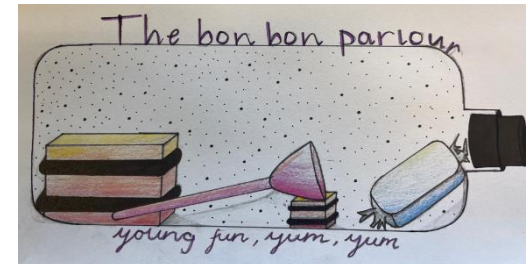 The bon bon parlour
young fun, yum, yum